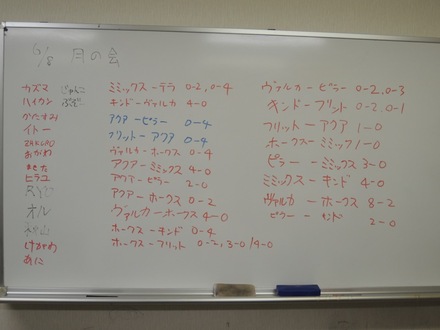 6/8 月の会
カズマ じゅんこ
ハイウン
かたすみ
イトー
ZAKURO
おがわ
ヒラユ
RYO
オル
秋山
けがわ
あに
ミミックス－テラ 0-2, 0-4
キンド－ヴァルカ 4-0
アクア－ピラー 0-4
フリット－アクア 0-4
ヴァルカ－ホークス 0-4
アクア－ミミックス 4-0
アクア－ピラー 2-0
アクア－ホークス 0-2
ヴァルカ－ホークス 4-0
ホークス－キンド 0-4
ホークス－フリット 0-2, 3-0/4-0
ヴァルカ－ピラー 0-2, 0-3
キンド－フリット 0-2, 0-1
フリット－アクア 1-0
ホークス－ミミック 1-0
ピラー－ミミックス 3-0
ミミックス－キンド 4-0
ヴァルカ－ホークス 8-2
ピラー－キンド 2-0